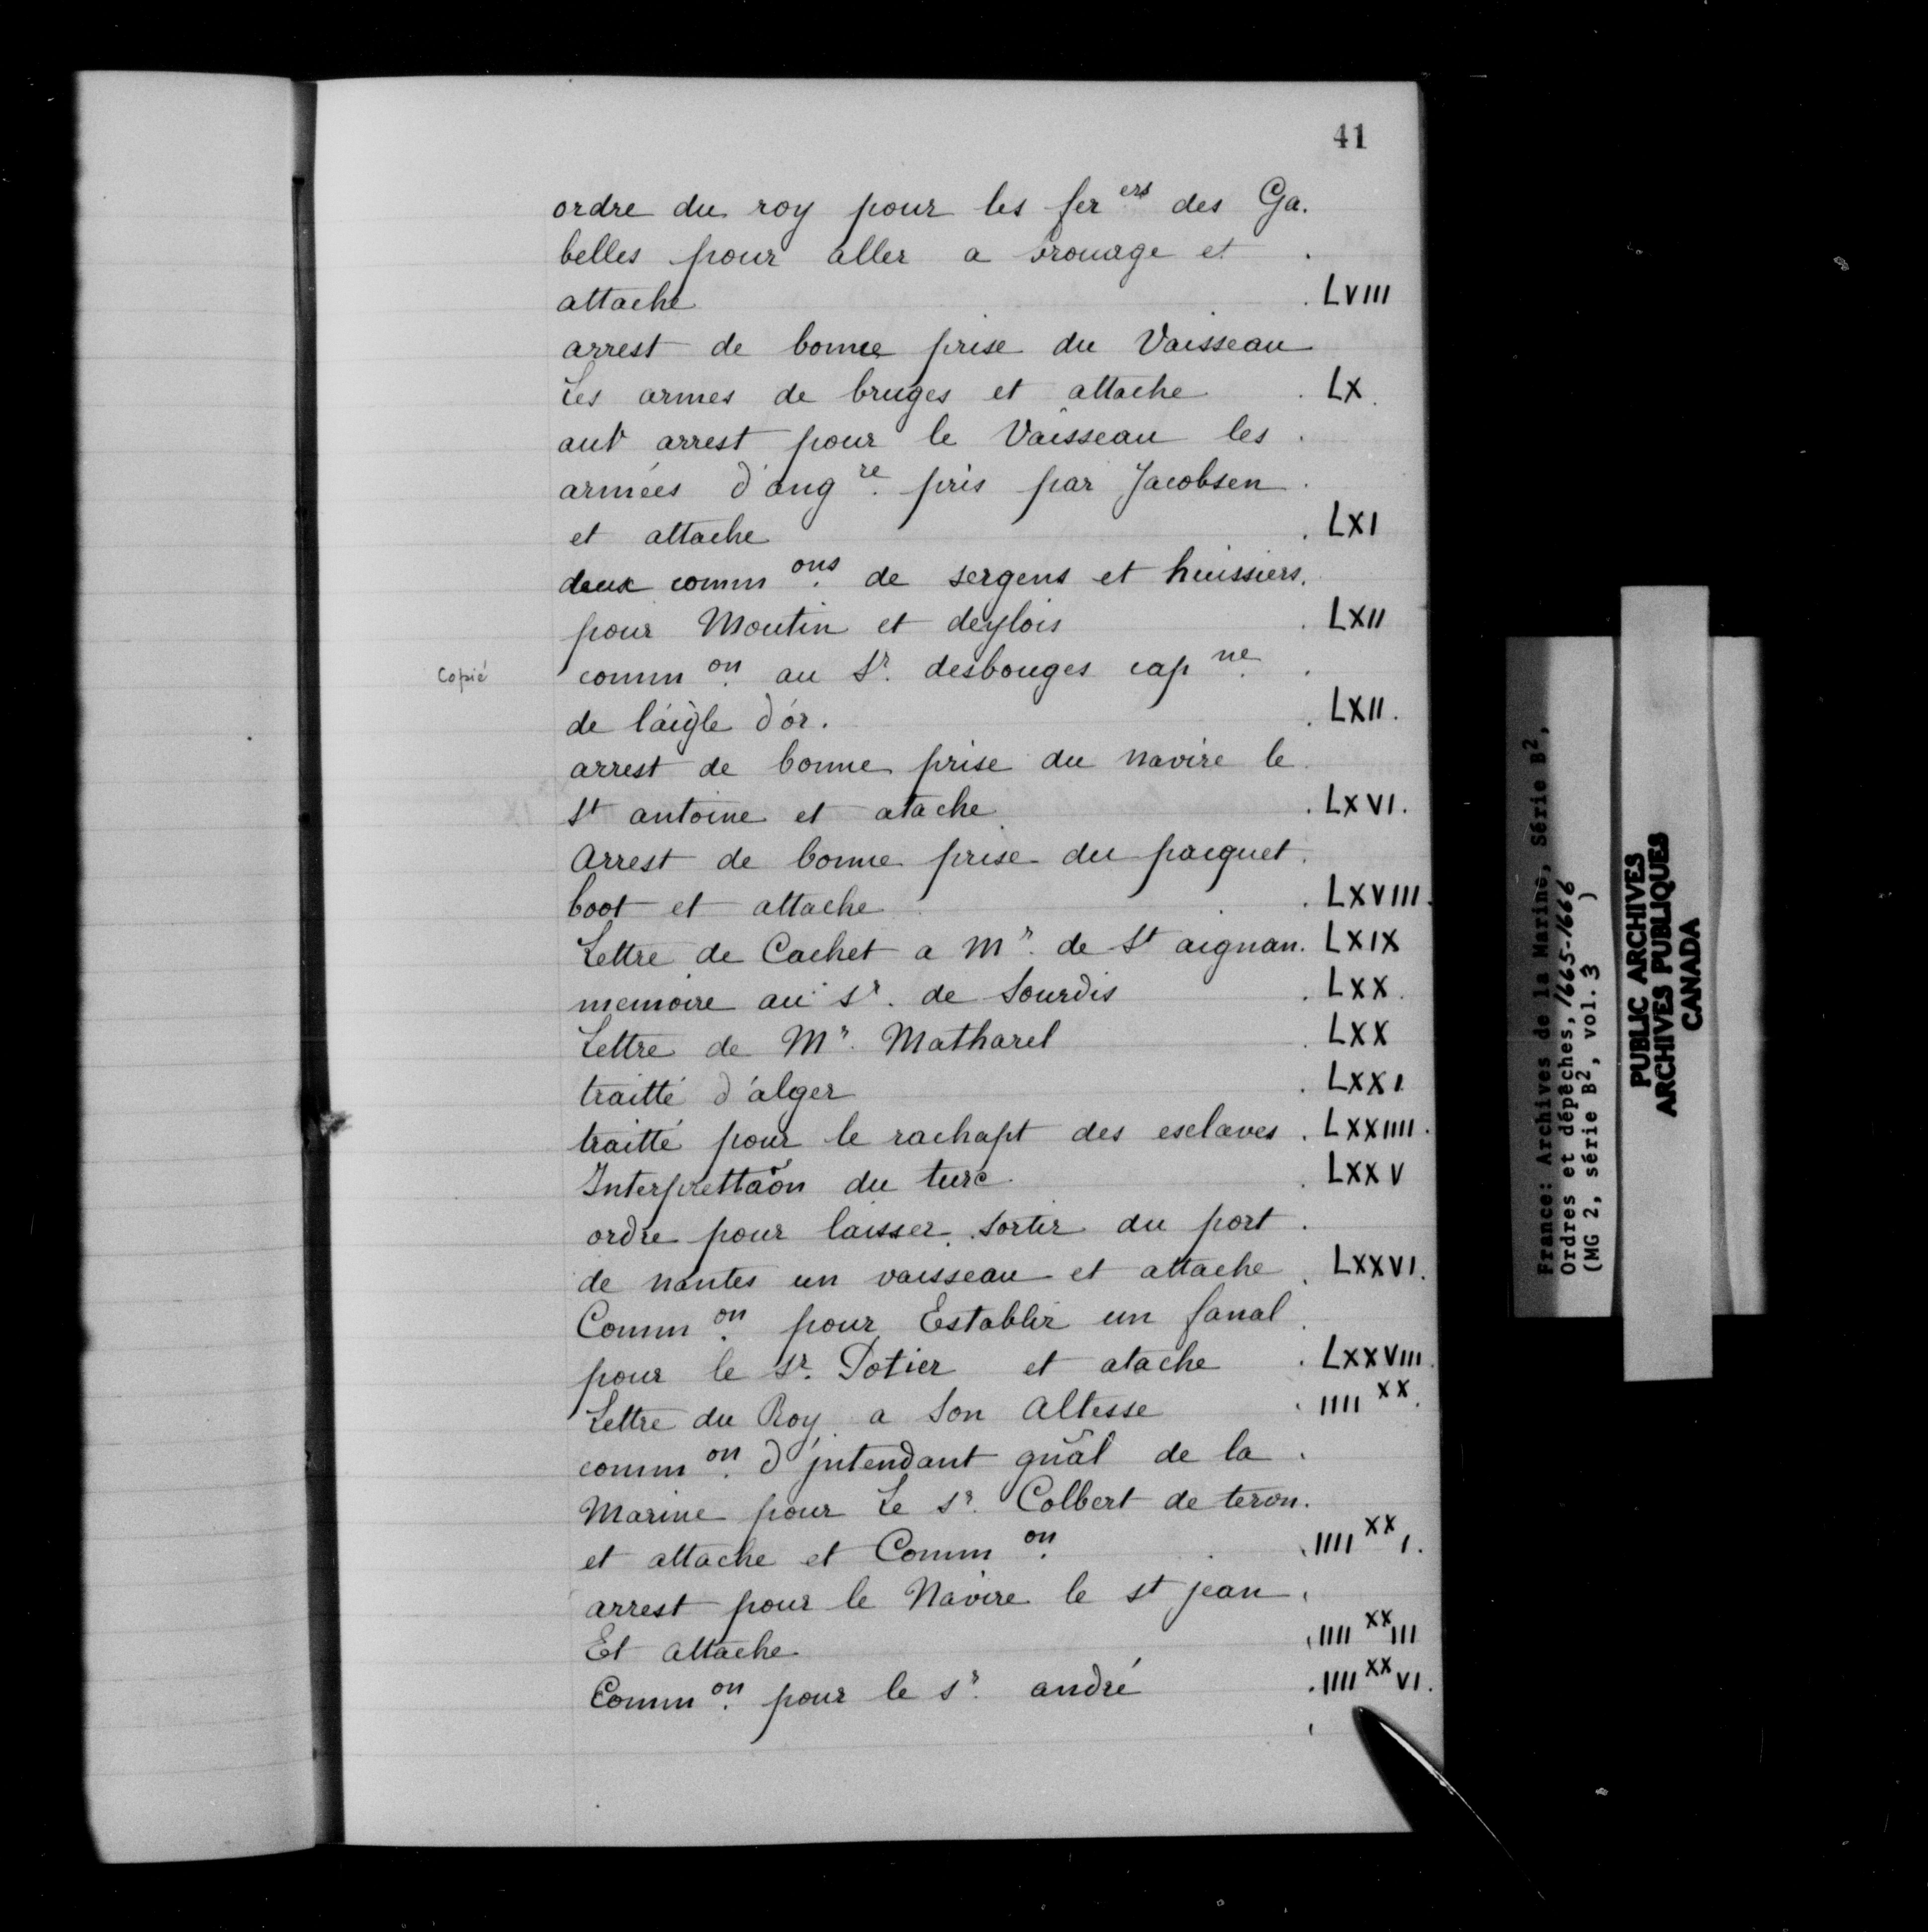 41
ordre du roy pour les fer ers des Ga.
belles pour aller a brouage et
attache . LVIII
arrest de bonne prise du Vaisseau
Les armes de bruges et attache . LX.
aut arrest pour le Vaisseau les
armées d'ang re. pris par Jacobsen
et attache . LXI
deux comm ons. de sergens et huissiers.
pour Moutin et deylois . LXII
Copié
comm on. au Sr. desbouges cap ne.
de l'aigle d'or. . LXII.
arrest de bonne prise du navire le
St antoine et atache . LXVI.
Arrest de bonne prise du pacquet
boot et attache . LXVIII.
Lettre de Cachet a Mr. de St aignan. LXIX
memoire au Sr. de Sourdis . LXX.
Lettre de Mr. Matharel . LXX
traitté d'alger . LXXI
traitté pour le rachapt des esclaves . LXXIIII.
Interprettaõn du turc . LXXV
ordre pour laisser sortir du port .
de nantes un vaisseau et attache . LXXVI.
Comm on. pour Establir un fanal
pour le Sr. Potier et atache . LXXVIII.
Lettre du Roy a Son Altesse . IIII XX.
comm on. d'jntendant gñal de la .
Marine pour Le Sr. Colbert de teron.
et attache et Comm on. . IIII XX I.
arrest pour le Navire le St jean .
Et attache . IIII XX III
Comm on. pour le Sr. andré . IIII XX VI.
France: Archives de la Marine, Série B2,
Ordres et dépêches, 1665-1666
(MG 2, série B2, vol. 3 )
PUBLIC ARCHIVES
ARCHIVES PUBLIQUES
CANADA